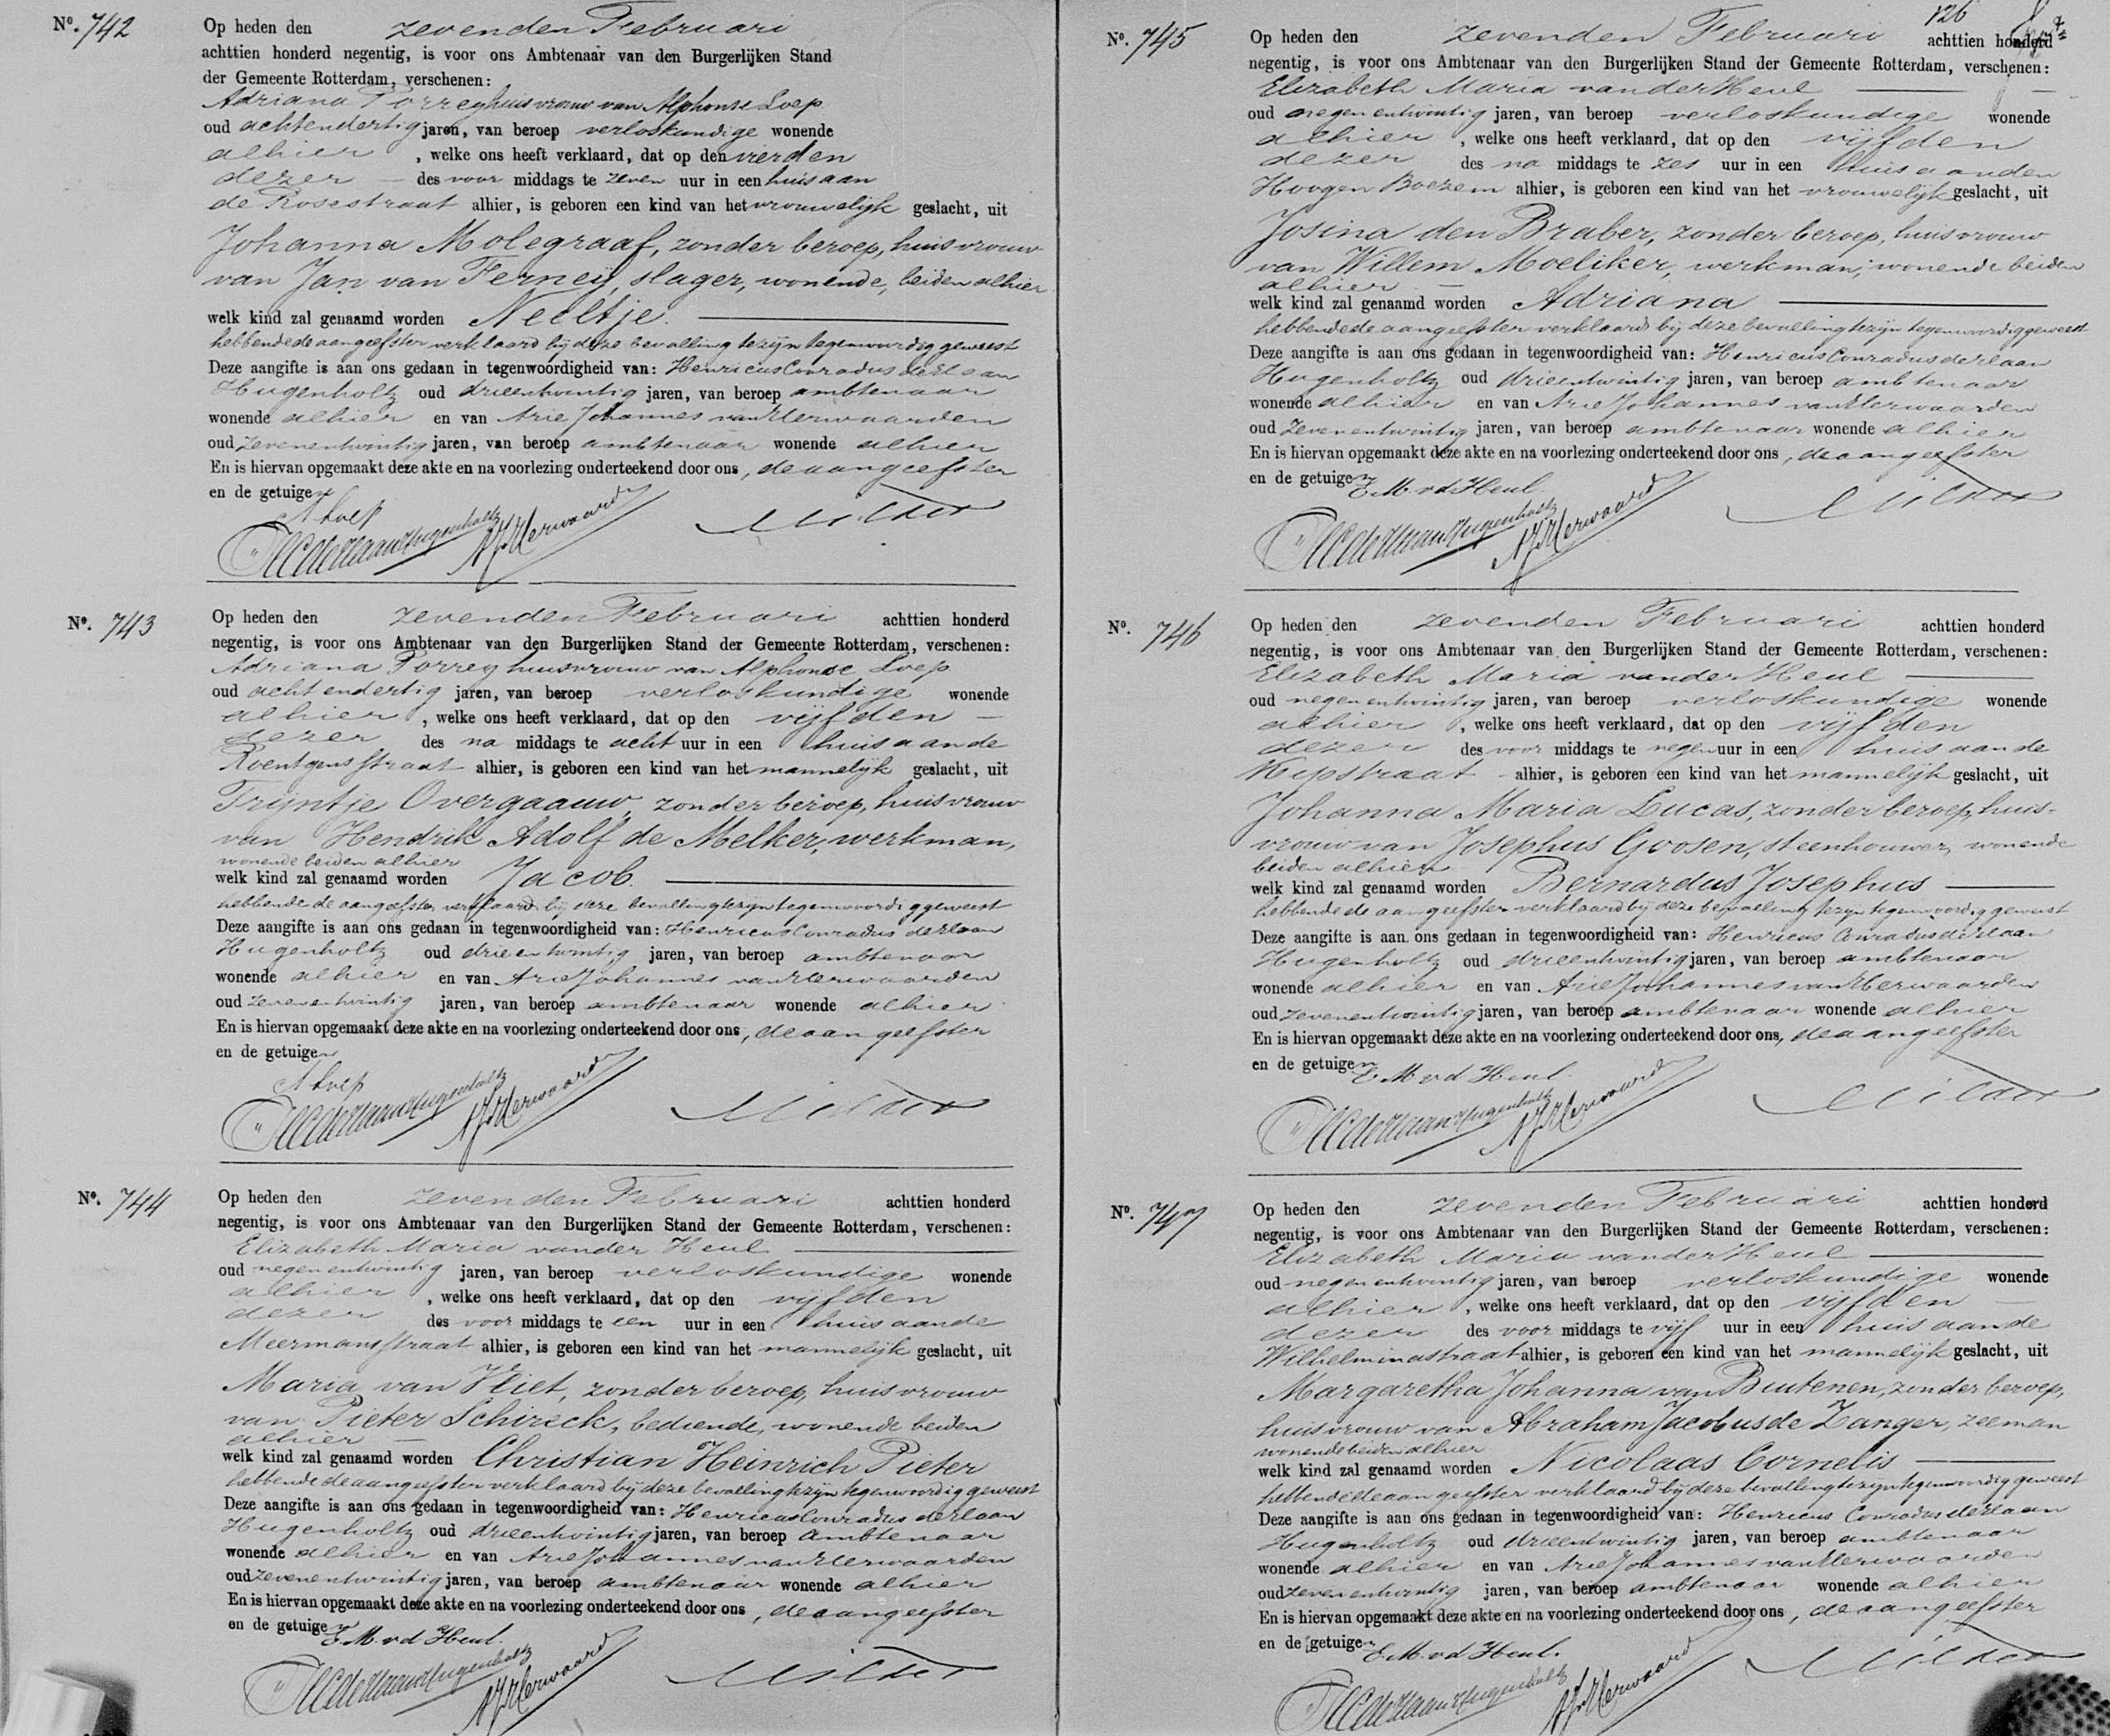 No. 742
Op heden den zevenden Februari
achttien honderd negentig, is voor ons Ambtenaar van den Burgerlijken Stand
der Gemeente Rotterdam, verschenen:
Adriana Porrey huisvrouw van Alphonse Loep
oud achtendertig jaren, van beroep verloskundige wonende
alhier, welke ons heeft verklaard, dat op den vierden
dezer des voor middags te zeven uur in een huis aan
de Rosestraat alhier, is geboren een kind van het vrouwelijk geslacht, uit
Johanna Molegraaf, zonder beroep, huisvrouw
van Jan van Ferneij, slager, wonende, beiden alhier
welk kind zal genaamd worden Neeltje.
hebbende de aangeefster verklaard bij deze bevalling te zijn tegenwoordig geweest
Deze aangifte is aan ons gedaan in tegenwoordigheid van: Henricus Conradus de Haan
Hugenholtz oud drieentwintig jaren, van beroep ambtenaar
wonende alhier en van Arie Johannes van Herwaarden
oud zevenentwintig jaren, van beroep ambtenaar wonende alhier
En is hiervan opgemaakt deze akte en na voorlezing onderteekend door ons, de aangeefster
en de getuigen
A Loep
HC de Haan Hugenholtz AJvHerwaarden
No. 743
Op heden den zevenden Februari achttien honderd
negentig, is voor ons Ambtenaar van den Burgerlijken Stand der Gemeente Rotterdam, verschenen:
Adriana Porrey huisvrouw van Alphonse Loep
oud achtendertig jaren, van beroep verloskundige wonende
alhier, welke ons heeft verklaard, dat op den vijfden
dezer des na middags te acht uur in een huis aan de
Roentgensstraat alhier, is geboren een kind van het mannelijk geslacht, uit
Trijntje Overgaauw, zonder beroep, huisvrouw
van Hendrik Adolf de Melker, werkman,
wonende beiden alhier
welk kind zal genaamd worden Jacob.
hebbende de aangeefster verklaard bij deze bevalling te zijn tegenwoordig geweest
Deze aangifte is aan ons gedaan in tegenwoordigheid van: Henricus Conradus de Haan
Hugenholtz oud drieentwintig jaren, van beroep ambtenaar
wonende alhier en van Arie Johannes van Herwaarden
oud zevenentwintig jaren, van beroep ambtenaar wonende alhier
En is hiervan opgemaakt deze akte en na voorlezing onderteekend door ons, de aangeefster
en de getuigen
A Loep
HC de Haan Hugenholtz AJvHerwaarden
No. 744
Op heden den zevenden Februari achttien honderd
negentig, is voor ons Ambtenaar van den Burgerlijken Stand der Gemeente Rotterdam, verschenen:
Elizabeth Maria van der Heul
oud negenentwintig jaren, van beroep verloskundige wonende
alhier, welke ons heeft verklaard, dat op den vijfden
dezer des voor middags te een uur in een huis aan de
Meermansstraat alhier, is geboren een kind van het mannelijk geslacht, uit
Maria van Vliet, zonder beroep, huisvrouw
van Pieter Schireck, bediende, wonende beiden
alhier
welk kind zal genaamd worden Christian Heinrich Pieter
hebbende de aangeefster verklaard bij deze bevalling te zijn tegenwoordig geweest
Deze aangifte is aan ons gedaan in tegenwoordigheid van: Henricus Conradus de Haan
Hugenholtz oud drieentwintig jaren, van beroep ambtenaar
wonende alhier en van Arie Johannes van Herwaarden
oud zevenentwintig jaren, van beroep ambtenaar wonende alhier
En is hiervan opgemaakt deze akte en na voorlezing onderteekend door ons, de aangeefster
en de getuigen
E. M. v d Heul.
HC de Haan Hugenholtz AJvHerwaarden
126
No. 745
Op heden den zevenden Februari achttien honderd
negentig, is voor ons Ambtenaar van den Burgerlijken Stand der Gemeente Rotterdam, verschenen:
Elizabeth Maria van der Heul
oud negenentwintig jaren, van beroep verloskundige wonende
alhier, welke ons heeft verklaard, dat op den vijfden
dezer des na middags te zes uur in een huis aan den
Hoogen Boezem alhier, is geboren een kind van het vrouwelijk geslacht, uit
Josina den Braber, zonder beroep, huisvrouw
van Willem Moeliker, werkman, wonende beiden
alhier
welk kind zal genaamd worden Adriana
hebbende de aangeefster verklaard bij deze bevalling te zijn tegenwoordig geweest
Deze aangifte is aan ons gedaan in tegenwoordigheid van: Henricus Conradus de Haan
Hugenholtz oud drieentwintig jaren, van beroep ambtenaar
wonende alhier en van Arie Johannes van Herwaarden
oud zevenentwintig jaren, van beroep ambtenaar wonende alhier
En is hiervan opgemaakt deze akte en na voorlezing onderteekend door ons, de aangeefster
en de getuigen
E. M. v d Heul.
HC de Haan Hugenholtz AJvHerwaarden
No. 746
Op heden den zevenden Februari achttien honderd
negentig, is voor ons Ambtenaar van den Burgerlijken Stand der Gemeente Rotterdam, verschenen:
Elizabeth Maria van der Heul
oud negenentwintig jaren, van beroep verloskundige wonende
alhier, welke ons heeft verklaard, dat op den vijfden
dezer des voor middags te negen uur in een huis aan de
Kipstraat alhier, is geboren een kind van het mannelijk geslacht, uit
Johanna Maria Lucas, zonder beroep, huis-
vrouw van Josephus Goosen, steenhouwer, wonende
beiden alhier
welk kind zal genaamd worden Bernardus Josephus
hebbende de aangeefster verklaard bij deze bevalling te zijn tegenwoordig geweest
Deze aangifte is aan ons gedaan in tegenwoordigheid van: Henricus Conradus de Haan
Hugenholtz oud drieentwintig jaren, van beroep ambtenaar
wonende alhier en van Arie Johannes van Herwaarden
oud zevenentwintig jaren, van beroep ambtenaar wonende alhier
En is hiervan opgemaakt deze akte en na voorlezing onderteekend door ons, de aangeefster
en de getuigen
E. M. v d Heul.
HC de Haan Hugenholtz AJvHerwaarden
No. 747
Op heden den zevenden Februari achttien honderd
negentig, is voor ons Ambtenaar van den Burgerlijken Stand der Gemeente Rotterdam, verschenen:
Elizabeth Maria van der Heul
oud negenentwintig jaren, van beroep verloskundige wonende
alhier, welke ons heeft verklaard, dat op den vijfden
dezer des voor middags te vijf uur in een huis aan de
Wilhelminastraat alhier, is geboren een kind van het mannelijk geslacht, uit
Margaretha Johanna van Buitenen, zonder beroep,
huisvrouw van Abraham Jacobus de Zanger, zeeman
wonende beiden alhier
welk kind zal genaamd worden Nicolaas Cornelis
hebbende de aangeefster verklaard bij deze bevalling te zijn tegenwoordig geweest
Deze aangifte is aan ons gedaan in tegenwoordigheid van: Henricus Conradus de Haan
Hugenholtz oud drieentwintig jaren, van beroep ambtenaar
wonende alhier en van Arie Johannes van Herwaarden
oud zevenentwintig jaren, van beroep ambtenaar wonende alhier
En is hiervan opgemaakt deze akte en na voorlezing onderteekend door ons, de aangeefster
en de getuigen
E. M. v d Heul.
HC de Haan Hugenholtz AJvHerwaarden